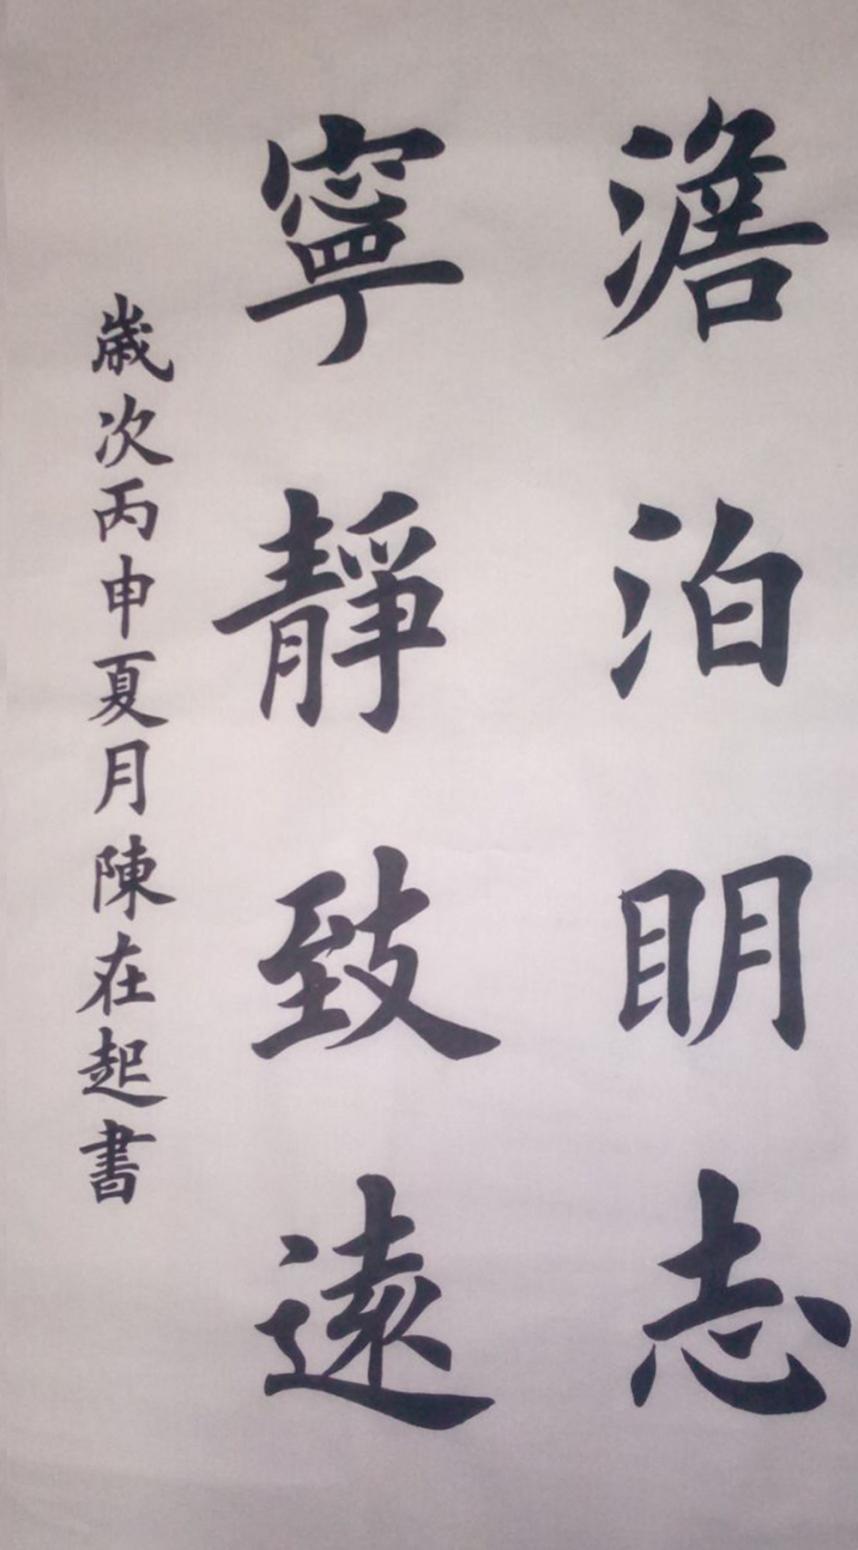 澹泊眀志
寧靜致遠
歲次丙申夏月陳在起書